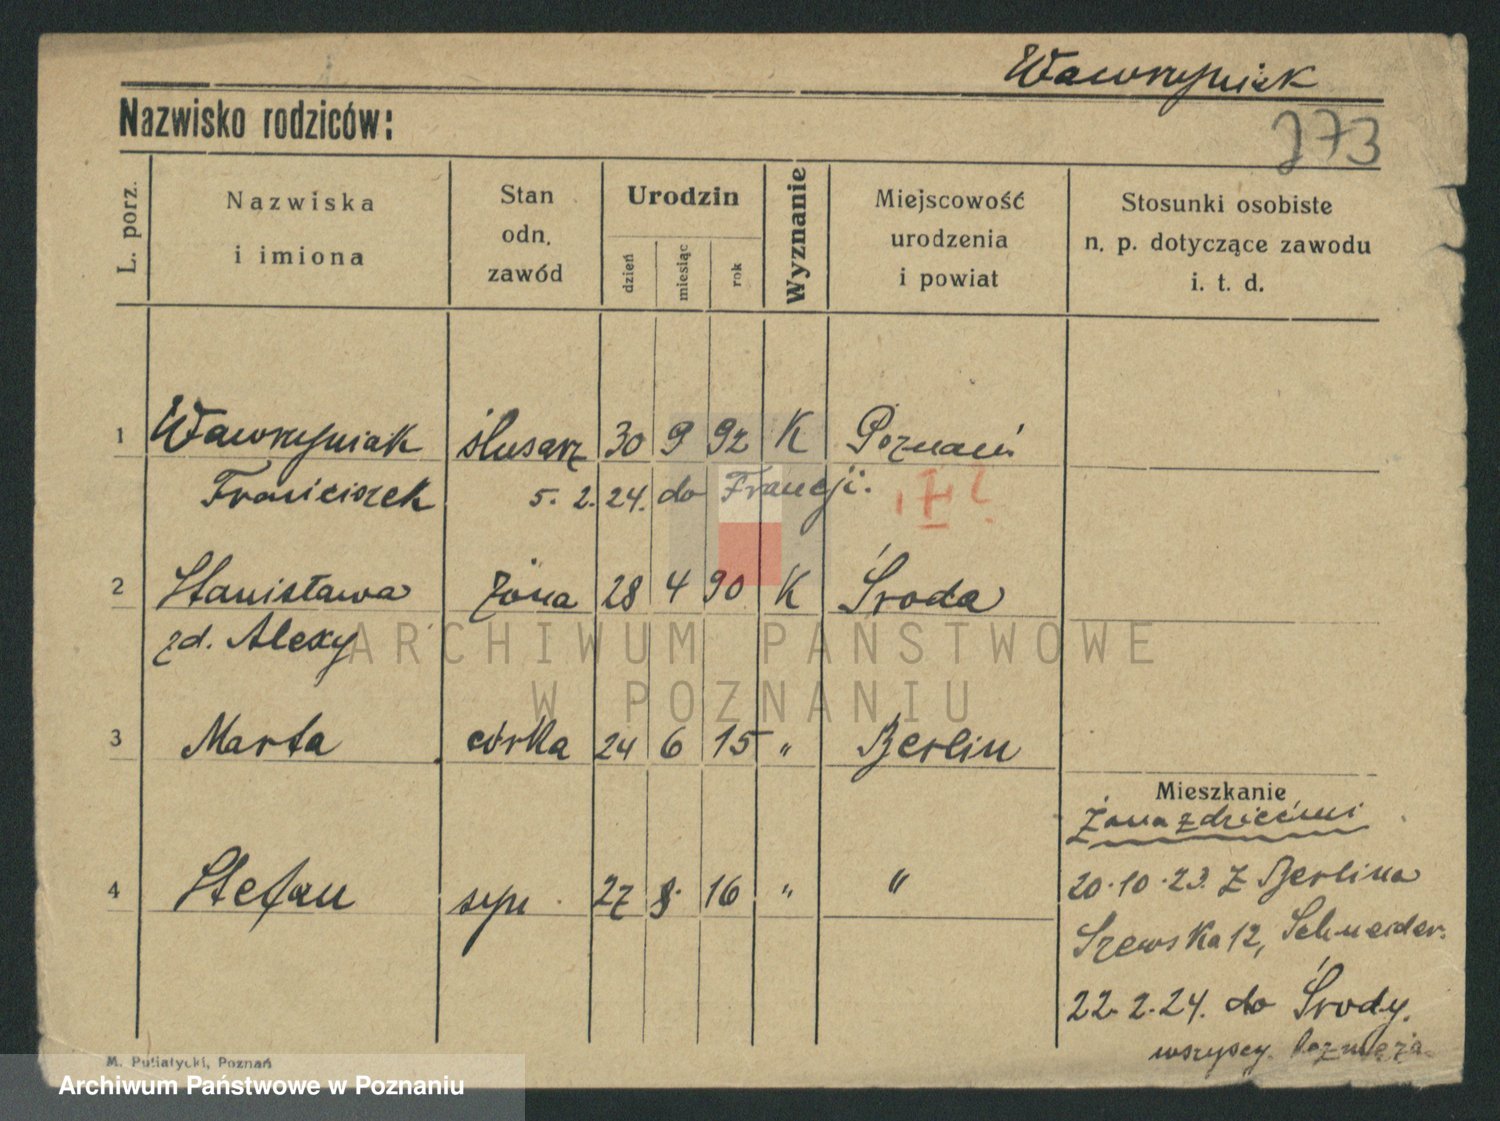 Wawrzyniak
Nazwisko rodziców:
273
L. porz.
Nazwiska
i imiona
Stan
odn.
zawód
Urodzin
dzień
miesiąc
rok
Wyznanie
Miejscowość
urodzenia
i powiat
Stosunki osobiste
n. p. dotyczące zawodu
i. t. d.
1 Wawrzyniak ślusarz 30 9 92 K Poznań
Franciszek 5. 2. 24. do Francji.
2 Stanisława żona 28 4 90 K Środa
zd. Alexy
ARCHIWUM PAŃSTWOWE
W POZNANIU
3 Marta córka 24 6 15 " Berlin
Mieszkanie
Żona z dziećmi
4 Stefan syn 27 8 16 " "
20.10.23. z Berlina
Szewska 12, Schneider.
22.2.24. do Środy.
wszyscy bez męża
M. Putiatycki, Poznań
Archiwum Państwowe w Poznaniu